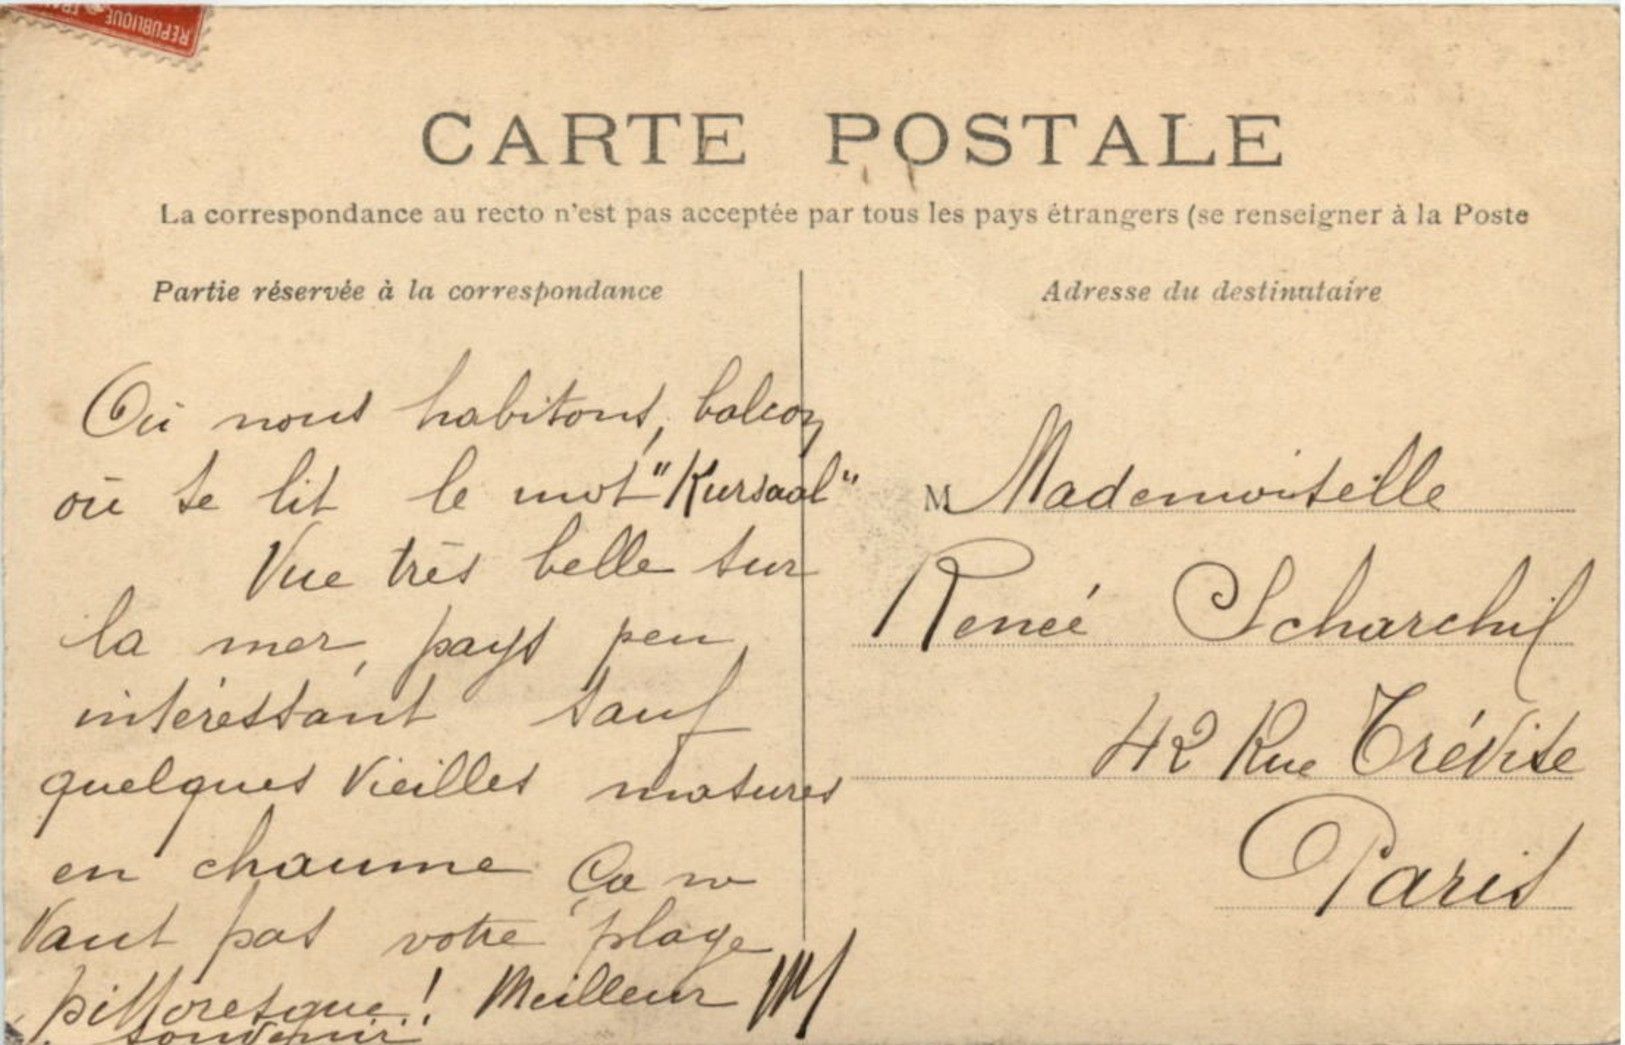 REPUBLIQUE FRAN
CARTE POSTALE
La correspondance au recto n'est pas acceptée par tous les pays étrangers (se renseigner à la Poste
Partie réservée à la correspondance
Où nous habitons, balcon
où se lit le mot "Kursaal"
Vue très belle sur
la mer, pays peu
intéressant sauf
quelques vieilles masures
en chaume Ça ne
vaut pas votre plage
pittoresque! Meilleur
souvenir
Adresse du destinataire
M Mademoiselle
Renée Scharchil
42 Rue Trévise
Paris